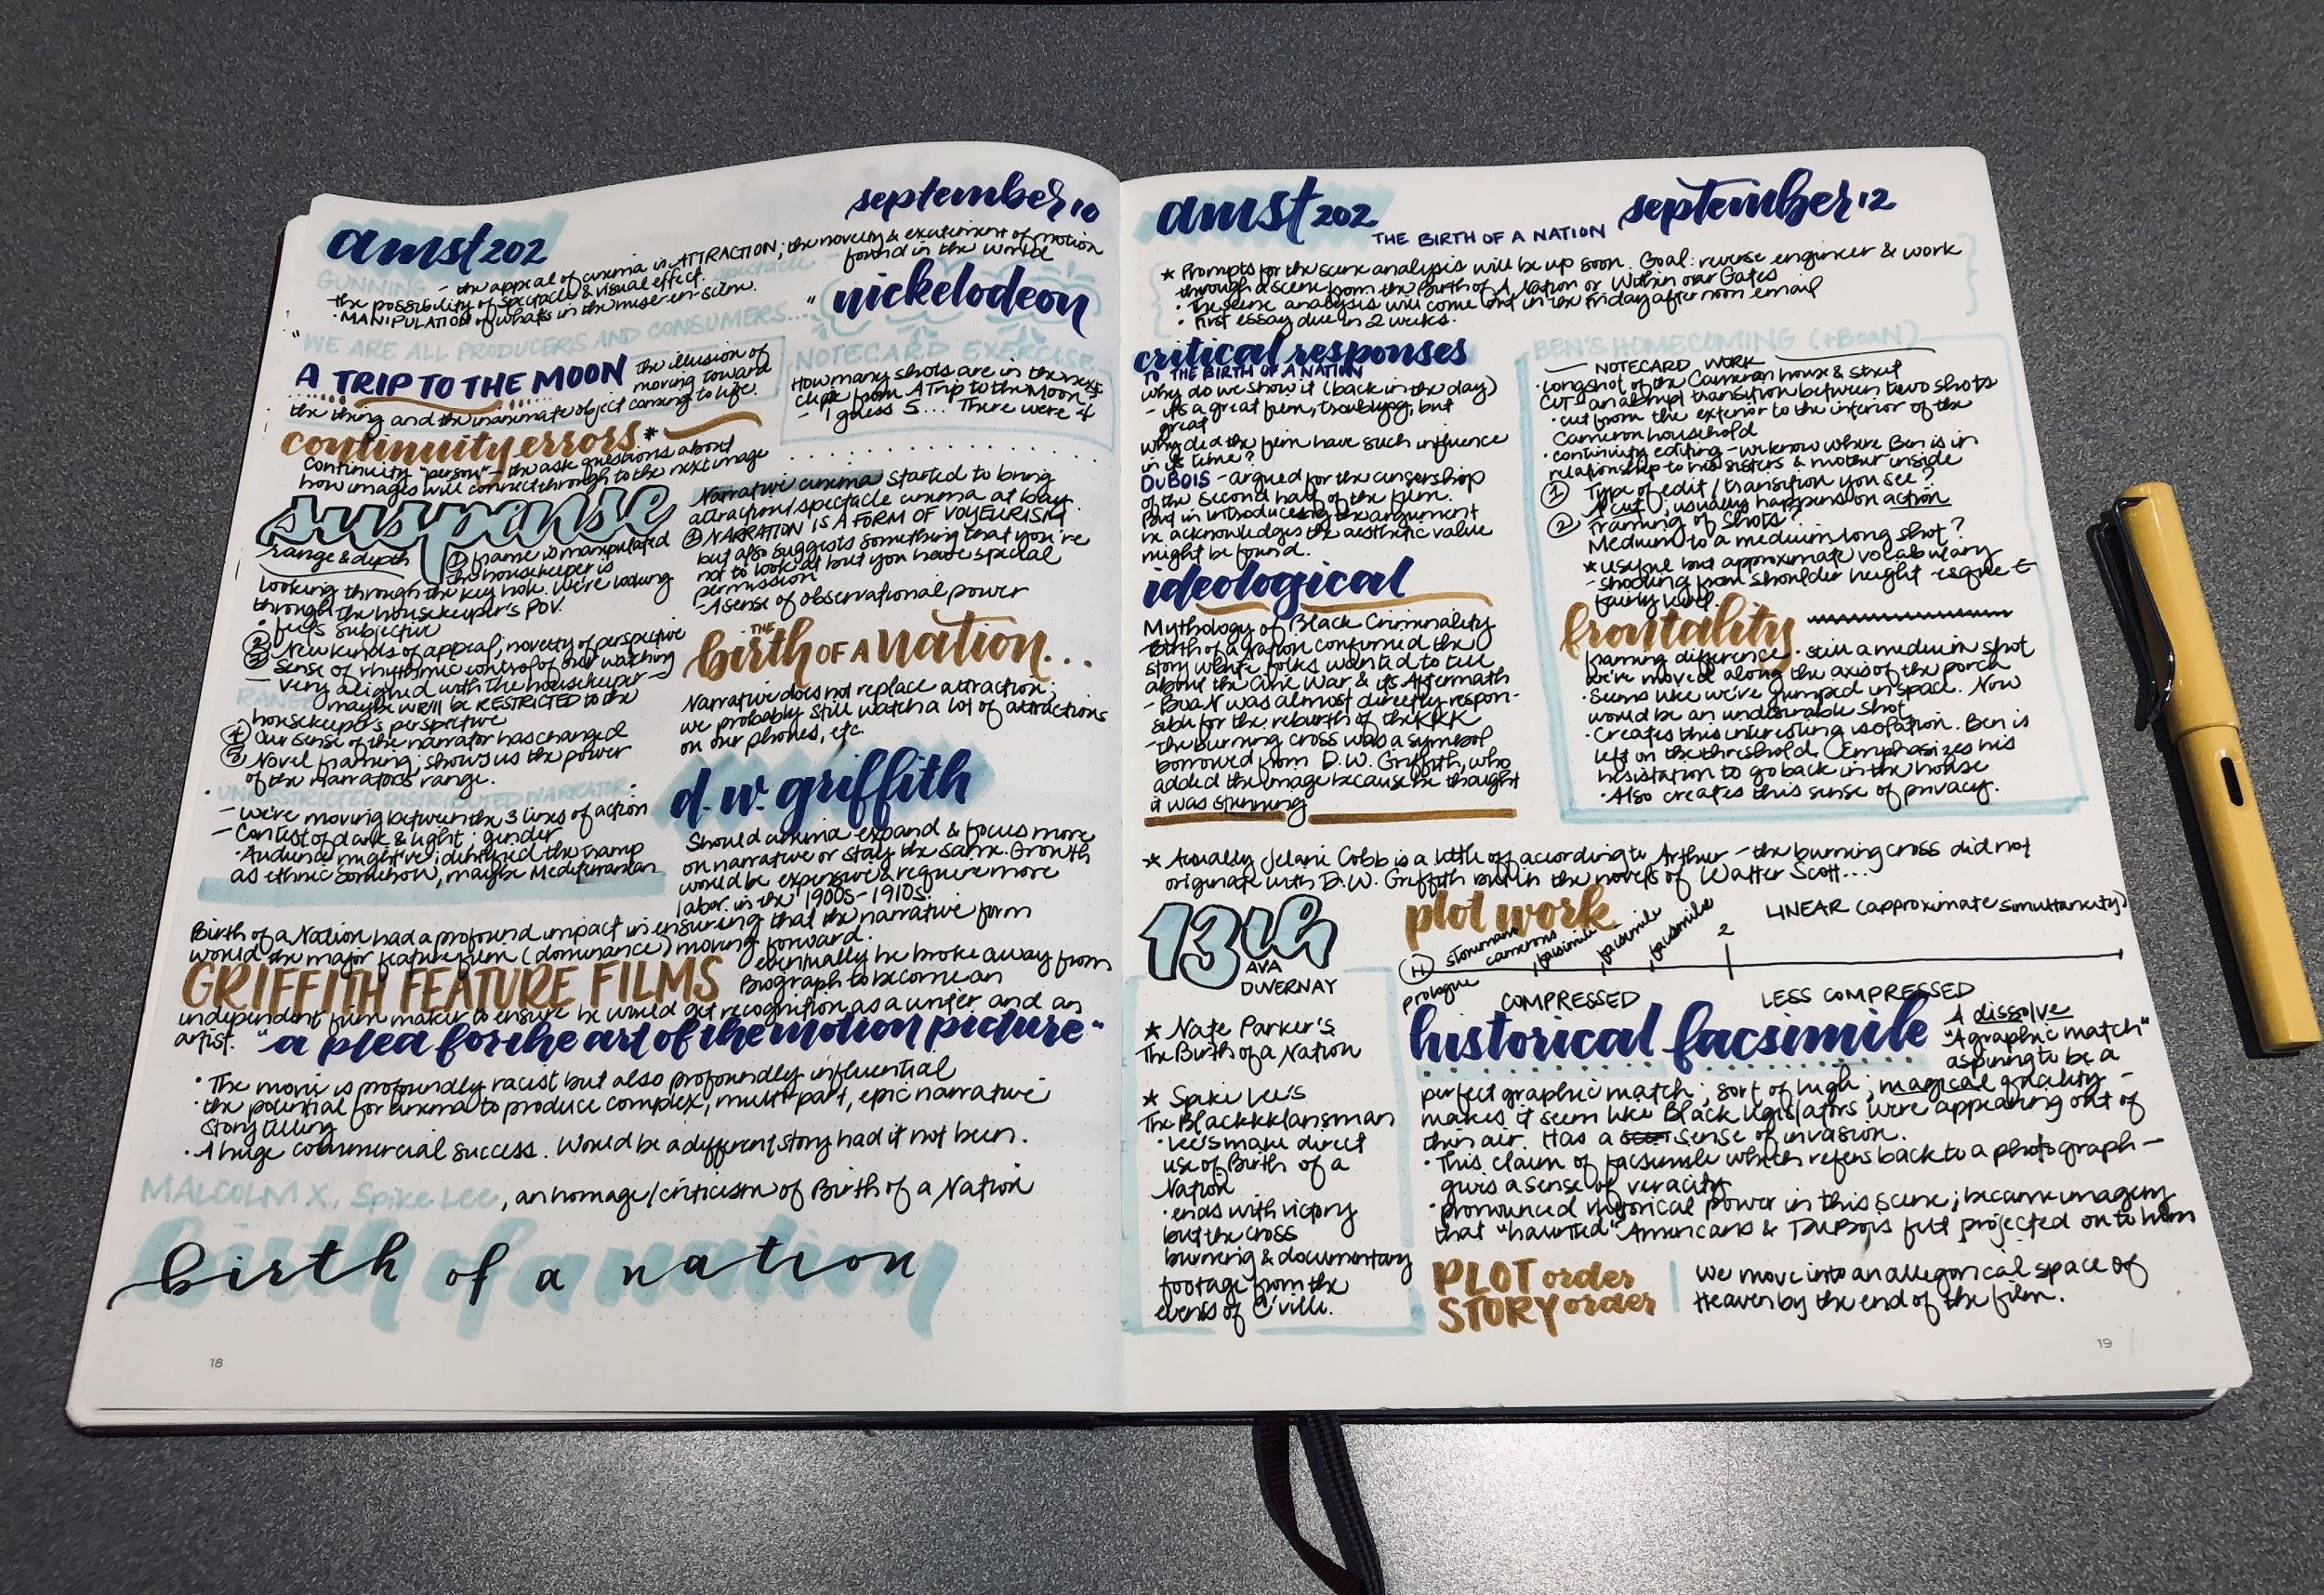 amst 202
september 10
GUNNING - the appeal of cinema is ATTRACTION; the novelty & excitement of motion
found in the world
the possibility of spectacle & visual effect. spectacle
· MANIPULATION of what's in the mise-en-scene.
"WE ARE ALL PRODUCERS AND CONSUMERS..."
nickelodeon
A TRIP TO THE MOON the illusion of
moving toward
the thing and the inanimate object coming to life.
NOTECARD EXERCISE
How many shots are in the next
clip from A Trip to the Moon?
- I guess 5... There were 4
continuity errors*
Continuity "person" - the ask questions about
how images will connect through to the next image
suspense
range & depth
① frame is manipulated
the housekeeper is
looking through the key hole. We're looking
through the housekeeper's POV.
· feels subjective
② New kinds of appeal, novelty of perspective
③ Sense of rhythmic control of our watching
- very aligned with the housekeeper -
RANGE maybe we'll be RESTRICTED to the
housekeeper's perspective
④ Our sense of the narrator has changed
⑤ Novel framing; shows us the power
of the narrator's range.
· UNRESTRICTED DISTRIBUTED NARRATOR:
- We're moving between the 3 lines of action
- Contest of dark & light; gender
· Audience might've identified the tramp
as ethnic somehow, maybe Mediterranean
Narrative cinema started to bring
attraction/spectacle cinema at bay.
① NARRATION IS A FORM OF VOYEURISM
but also suggests something that you're
not to look at but you have special
permission
- A sense of observational power
THE birth OF A nation...
Narrative does not replace attraction;
we probably still watch a lot of attractions
on our phones, etc.
d.w. griffith
Should cinema expand & focus more
on narrative or stay the same. Growth
would be expensive & require more
labor in the 1900s-1910s.
Birth of a Nation had a profound impact in ensuring that the narrative form
would the major feature film (dominance) moving forward.
GRIFFITH FEATURE FILMS eventually he broke away from
Biograph to become an
independent film maker to ensure he would get recognition as a writer and an
artist. "a plea for the art of the motion picture"
· The movie is profoundly racist but also profoundly influential
· the potential for cinema to produce complex, multi-part, epic narrative
story telling
· A huge commercial success. Would be a different story had it not been.
MALCOLM X, Spike Lee, an homage/criticism of Birth of a Nation
birth of a nation
18
amst 202
THE BIRTH OF A NATION
september 12
* Prompts for the scene analysis will be up soon. Goal: reverse engineer & work
through a scene from the Birth of A Nation or Within our Gates
· The scene analysis will come out in the Friday afternoon email
· First essay due in 2 weeks.
critical responses
TO THE BIRTH OF A NATION
Why do we show it (back in the day)
- it's a great film, troubling, but
great
Why did the film have such influence
in its time?
DUBOIS - argued for the censorship
of the second half of the film.
But in introducing the argument
he acknowledges the aesthetic value
might be found.
ideological
Mythology of Black Criminality
Birth of a Nation confirmed the
story white folks wanted to tell
about the Civil War & its Aftermath
- BoaN was almost directly respon-
sible for the rebirth of the KKK
- the burning cross was a symbol
borrowed from D.W. Griffith, who
added the image because he thought
it was stunning
BEN'S HOMECOMING (+BoaN)
- NOTECARD WORK
· Longshot of the Cameron house & street
CUT - an abrupt transition between two shots
· cut from the exterior to the interior of the
Cameron household
· continuity editing - we know where Ben is in
relationship to his sisters & mother inside
① Type of edit / transition you see?
A cut; usually happens on action
② Framing of shots?
Medium to a medium long shot?
* useful but approximate vocabulary
- shooting from shoulder height-esque
fairly level.
frontality
framing difference · still a medium shot
we've moved along the axis of the porch
· Seems like we've jumped in space. Now
would be an undesirable shot
· Creates this interesting isolation. Ben is
left on the threshold. Emphasizes his
hesistation to go back in the house
· Also creates this sense of privacy.
* Actually Jelani Cobb is a little off according to Arthur - the burning cross did not
originate with D.W. Griffith but in the novels of Walter Scott...
13th
AVA
DUVERNAY
* Nate Parker's
The Birth of a Nation
* Spike Lee's
The Blackkklansman
· Lee's make direct
use of Birth of a
Nation
· ends with victory
but the cross
burning & documentary
footage from the
events of C'ville.
plot work
LINEAR (approximate simultaneity)
prologue
stoneman
camerons
facsimile
facsimile
facsimile
2
COMPRESSED
LESS COMPRESSED
historical facsimile
A dissolve
"A graphic match"
aspiring to be a
perfect graphic match; sort of high; magical quality -
makes it seem like Black legislators were appearing out of
thin air. Has a sense of invasion.
· This claim of facsimile which refers back to a photograph -
gives a sense of veracity
· pronounced rhetorical power in this scene; became imagery
that "haunted" Americans & DuBois felt projected on to him
PLOT order
STORY order
We move into an allegorical space of
Heaven by the end of the film.
19